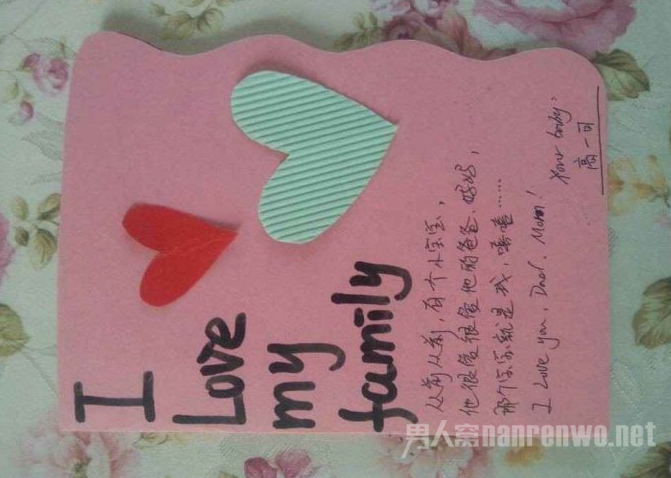 I
Love
my
family
从前从前，有个小宝宝，
他很像很像他的爸爸、妈妈，
那个宝宝就是我，嘻嘻……
I Love you, Dad, Mom!
Your baby,
高一可
男人窝nanrenwo.net